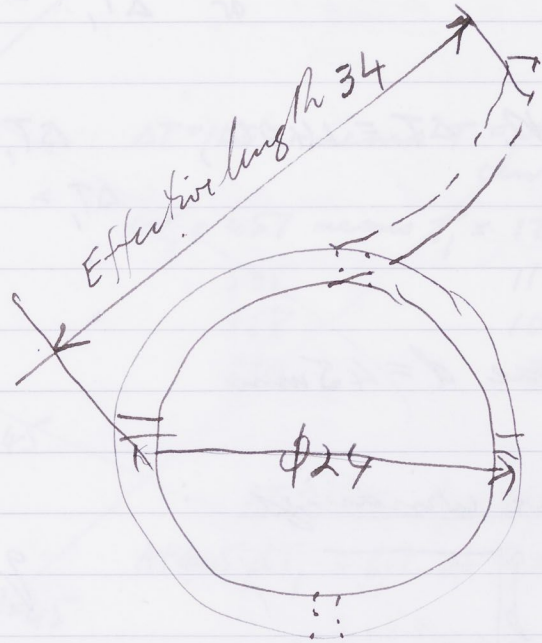 Effective length 34
ϕ24